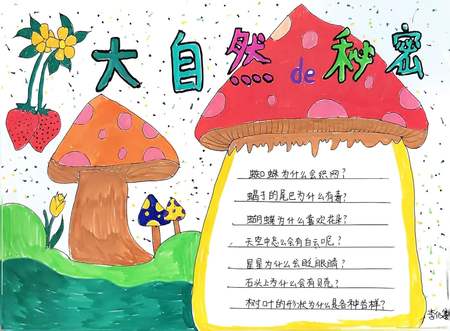 大自然de秘密
蜘蛛为什么会织网?
蝎子的尾巴为什么有毒?
蝴蝶为什么喜欢花朵?
天空中怎么会有白云呢?
星星为什么会眨眼睛?
石头上为什么会有贝壳?
树叶的形状为什么是各种各样?